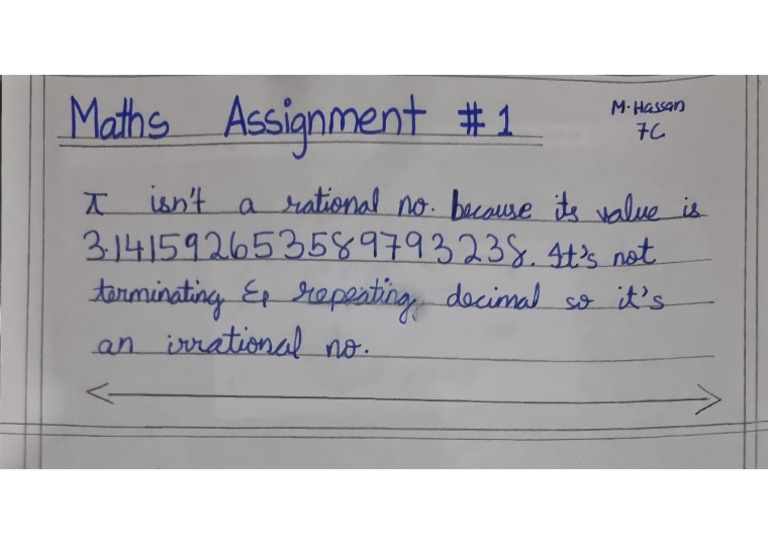 Maths Assignment #1
M. Hassan
7C
π isn't a rational no. because its value is
3.141592653589793238. It's not
terminating & repeating decimal so it's
an irrational no.